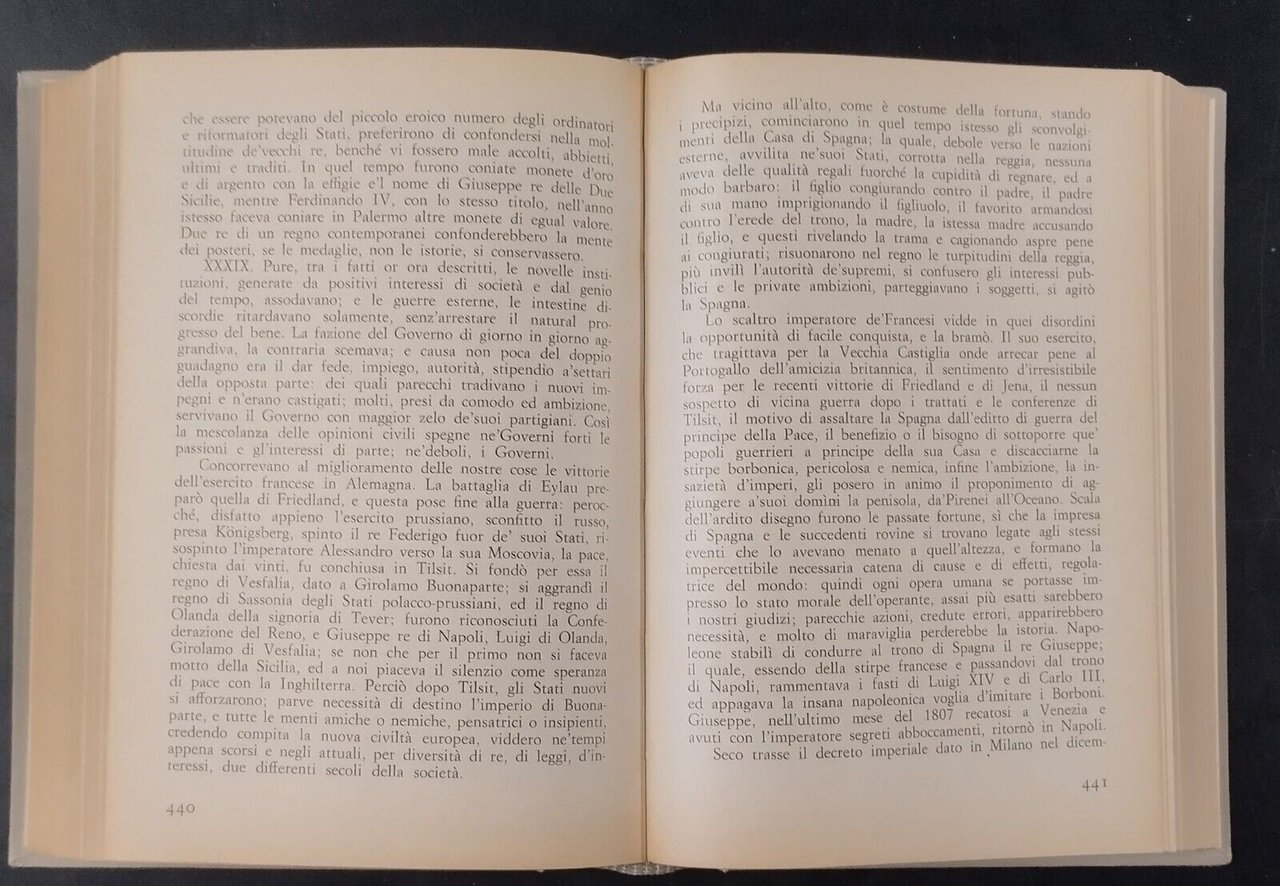 che essere potevano del piccolo eroico numero degli ordinatori
e riformatori degli Stati, preferirono di confondersi nella mol-
titudine de'vecchi re, benché vi fossero male accolti, abbietti,
ultimi e traditi. In quel tempo furono coniate monete d'oro
e di argento con la effigie e'l nome di Giuseppe re delle Due
Sicilie, mentre Ferdinando IV, con lo stesso titolo, nell'anno
istesso faceva coniare in Palermo altre monete di egual valore.
Due re di un regno contemporanei confonderebbero la mente
dei posteri, se le medaglie, non le istorie, si conservassero.
XXXIX. Pure, tra i fatti or ora descritti, le novelle insti-
tuzioni, generate da positivi interessi di società e dal genio
del tempo, assodavano; e le guerre esterne, le intestine di-
scordie ritardavano solamente, senz'arrestare il natural pro-
gresso del bene. La fazione del Governo di giorno in giorno ag-
grandiva, la contraria scemava; e causa non poca del doppio
guadagno era il dar fede, impiego, autorità, stipendio a'settari
della opposta parte: dei quali parecchi tradivano i nuovi im-
pegni e n'erano castigati; molti, presi da comodo ed ambizione,
servivano il Governo con maggior zelo de'suoi partigiani. Così
la mescolanza delle opinioni civili spegne ne'Governi forti le
passioni e gl'interessi di parte; ne'deboli, i Governi.
Concorrevano al miglioramento delle nostre cose le vittorie
dell'esercito francese in Alemagna. La battaglia di Eylau pre-
parò quella di Friedland, e questa pose fine alla guerra: peroc-
ché, disfatto appieno l'esercito prussiano, sconfitto il russo,
presa Königsberg, spinto il re Federigo fuor de' suoi Stati, ri-
sospinto l'imperatore Alessandro verso la sua Moscovia, la pace,
chiesta dai vinti, fu conchiusa in Tilsit. Si fondò per essa il
regno di Vesfalia, dato a Girolamo Buonaparte; si aggrandì il
regno di Sassonia degli Stati polacco-prussiani, ed il regno di
Olanda della signoria di Tever; furono riconosciuti la Confe-
derazione del Reno, e Giuseppe re di Napoli, Luigi di Olanda,
Girolamo di Vesfalia; se non che per il primo non si faceva
motto della Sicilia, ed a noi piaceva il silenzio come speranza
di pace con la Inghilterra. Perciò dopo Tilsit, gli Stati nuovi
si afforzarono; parve necessità di destino l'imperio di Buona-
parte, e tutte le menti amiche o nemiche, pensatrici o insipienti,
credendo compita la nuova civiltà europea, viddero ne'tempi
appena scorsi e negli attuali, per diversità di re, di leggi, d'in-
teressi, due differenti secoli della società.
440
Ma vicino all'alto, come è costume della fortuna, stando
i precipizi, cominciarono in quel tempo istesso gli sconvolgi-
menti della Casa di Spagna; la quale, debole verso le nazioni
esterne, avvilita ne'suoi Stati, corrotta nella reggia, nessuna
aveva delle qualità regali fuorché la cupidità di regnare, ed a
modo barbaro: il figlio congiurando contro il padre, il padre
di sua mano imprigionando il figliuolo, il favorito armandosi
contro l'erede del trono, la madre, la istessa madre accusando
il figlio, e questi rivelando la trama e cagionando aspre pene
ai congiurati; risuonarono nel regno le turpitudini della reggia,
più invilì l'autorità de'supremi, si confusero gli interessi pub-
blici e le private ambizioni, parteggiavano i soggetti, si agitò
la Spagna.
Lo scaltro imperatore de'Francesi vidde in quei disordini
la opportunità di facile conquista, e la bramò. Il suo esercito,
che tragittava per la Vecchia Castiglia onde arrecar pene al
Portogallo dell'amicizia britannica, il sentimento d'irresistibile
forza per le recenti vittorie di Friedland e di Jena, il nessun
sospetto di vicina guerra dopo i trattati e le conferenze di
Tilsit, il motivo di assaltare la Spagna dall'editto di guerra del
principe della Pace, il benefizio o il bisogno di sottoporre que'
popoli guerrieri a principe della sua Casa e discacciarne la
stirpe borbonica, pericolosa e nemica, infine l'ambizione, la in-
sazietà d'imperi, gli posero in animo il proponimento di ag-
giungere a'suoi domìni la penisola, da'Pirenei all'Oceano. Scala
dell'ardito disegno furono le passate fortune, sì che la impresa
di Spagna e le succedenti rovine si trovano legate agli stessi
eventi che lo avevano menato a quell'altezza, e formano la
impercettibile necessaria catena di cause e di effetti, regola-
trice del mondo: quindi ogni opera umana se portasse im-
presso lo stato morale dell'operante, assai più esatti sarebbero
i nostri giudizi; parecchie azioni, credute errori, apparirebbero
necessità, e molto di maraviglia perderebbe la istoria. Napo-
leone stabilì di condurre al trono di Spagna il re Giuseppe;
il quale, essendo della stirpe francese e passandovi dal trono
di Napoli, rammentava i fasti di Luigi XIV e di Carlo III,
ed appagava la insana napoleonica voglia d'imitare i Borboni.
Giuseppe, nell'ultimo mese del 1807 recatosi a Venezia e
avuti con l'imperatore segreti abboccamenti, ritornò in Napoli.
Seco trasse il decreto imperiale dato in Milano nel dicem-
441